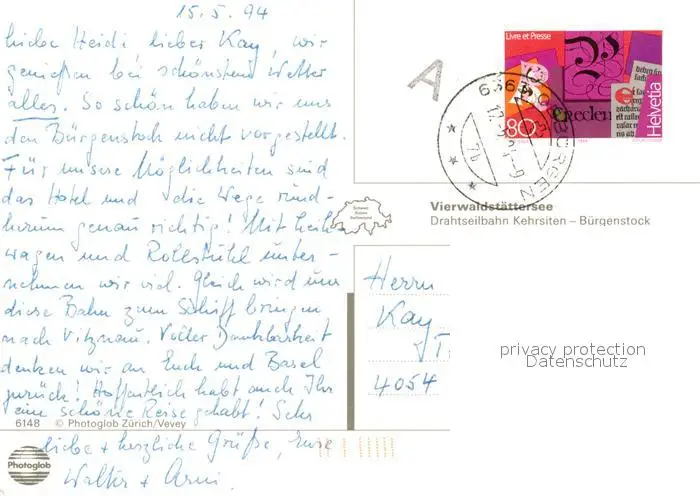 15.5.94
Liebe Heidi, lieber Kay, wir
genießen bei schönstem Wetter
alles. So schön haben wir uns
den Bürgenstock nicht vorgestellt.
Für unsere Möglichkeiten sind
das Hotel und die Wege rund-
herum genau richtig! Mit
wagen und Rollstuhl unter-
nehmen wir viel. Gleich wird uns
diese Bahn zum Schiff bringen
nach Vitznau. Voller Dankbarkeit
denken wir an Euch und Basel
zurück! Hoffentlich habt auch Ihr
eine schöne Reise gehabt! Sehr
liebe + herzliche Grüße, Eure
Walter + Arni.
6148 © Photoglob Zürich/Vevey
Photoglob
A
Livre et Presse
80
Helvetia
6363 OBBÜRGEN
Vierwaldstättersee
Drahtseilbahn Kehrsiten – Bürgenstock
Herrn
Kay
4054
privacy protection
Datenschutz